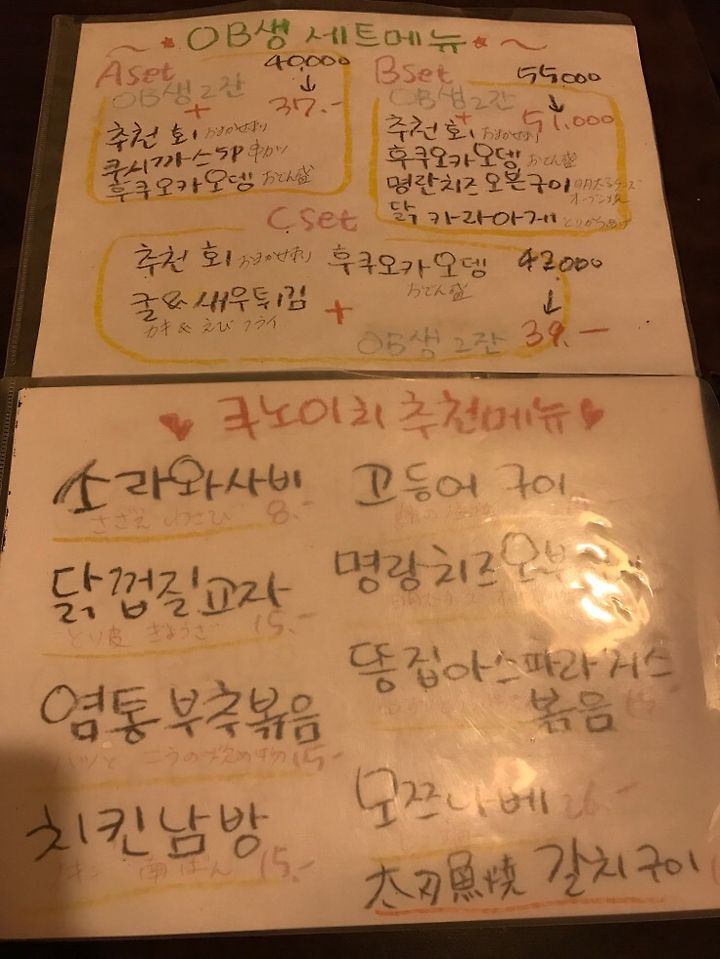 ~ ★ OB생 세트메뉴 ★ ~
Aset 40,000
OB생 2잔 ↓
+ 37.-
추천 회 おまかせ刺
쿠시까스5P 串かつ
후쿠오카오뎅 おでん盛
Bset 55000
OB생 2잔 ↓
+ 51,000
추천 회 おまかせ刺
후쿠오카오뎅 おでん盛
명란치즈 오븐구이 明太子チーズ
オーブン焼
닭 카라아게 とりからあげ
Cset
추천 회 おまかせ刺 후쿠오카오뎅 42,000
おでん盛 ↓
굴&새우튀김 + 39.-
カキ & えび フライ
OB생 2잔
♥ 쿠노이치 추천메뉴 ♥
소라와사비
さざえ わさび 8.-
닭껍질교자
とり皮 ぎょうざ 15.-
염통부추볶음
ハツと
치킨남방
チキン 南ばん 15.-
고등어 구이
명랑치즈오븐
똥집아스파라거스
볶음
모쯔나베 26.-
太刀魚焼 갈치구이